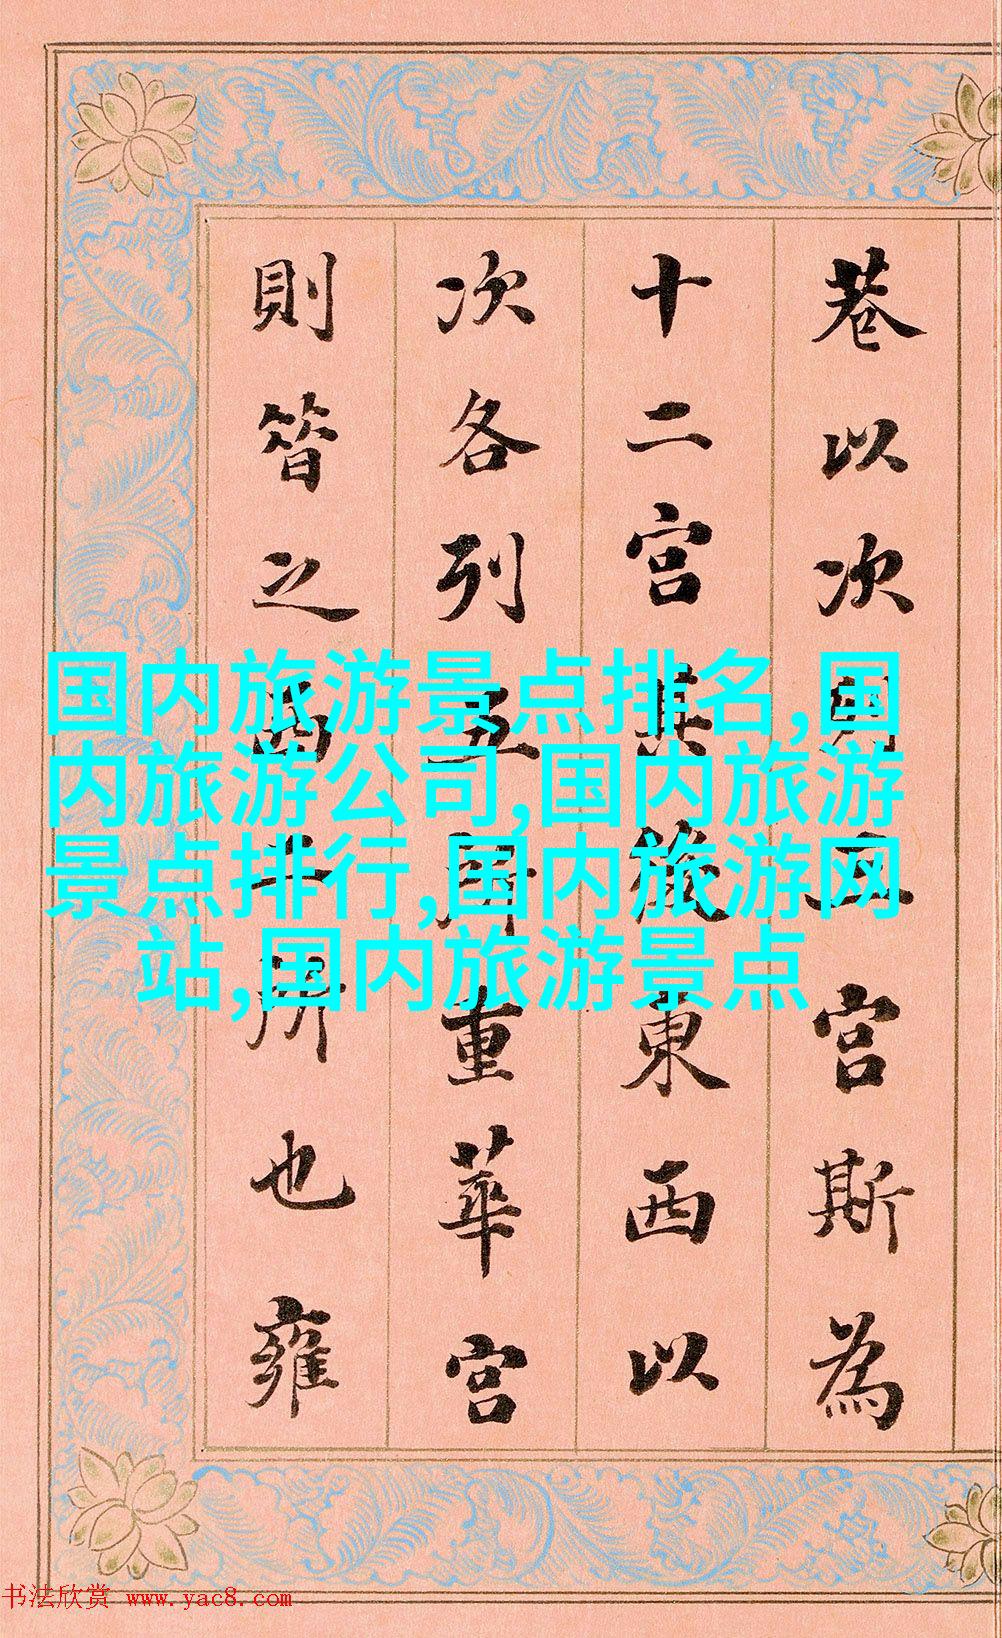 巷以次列五宮斯為
十二宮其後東西以
次各列五所重華宮
則昔之西二所也雍
国内旅游景点排名,国
内旅游公司,国内旅游
景点排行,国内旅游网
站,国内旅游景点
书法欣赏 www.yac8.com